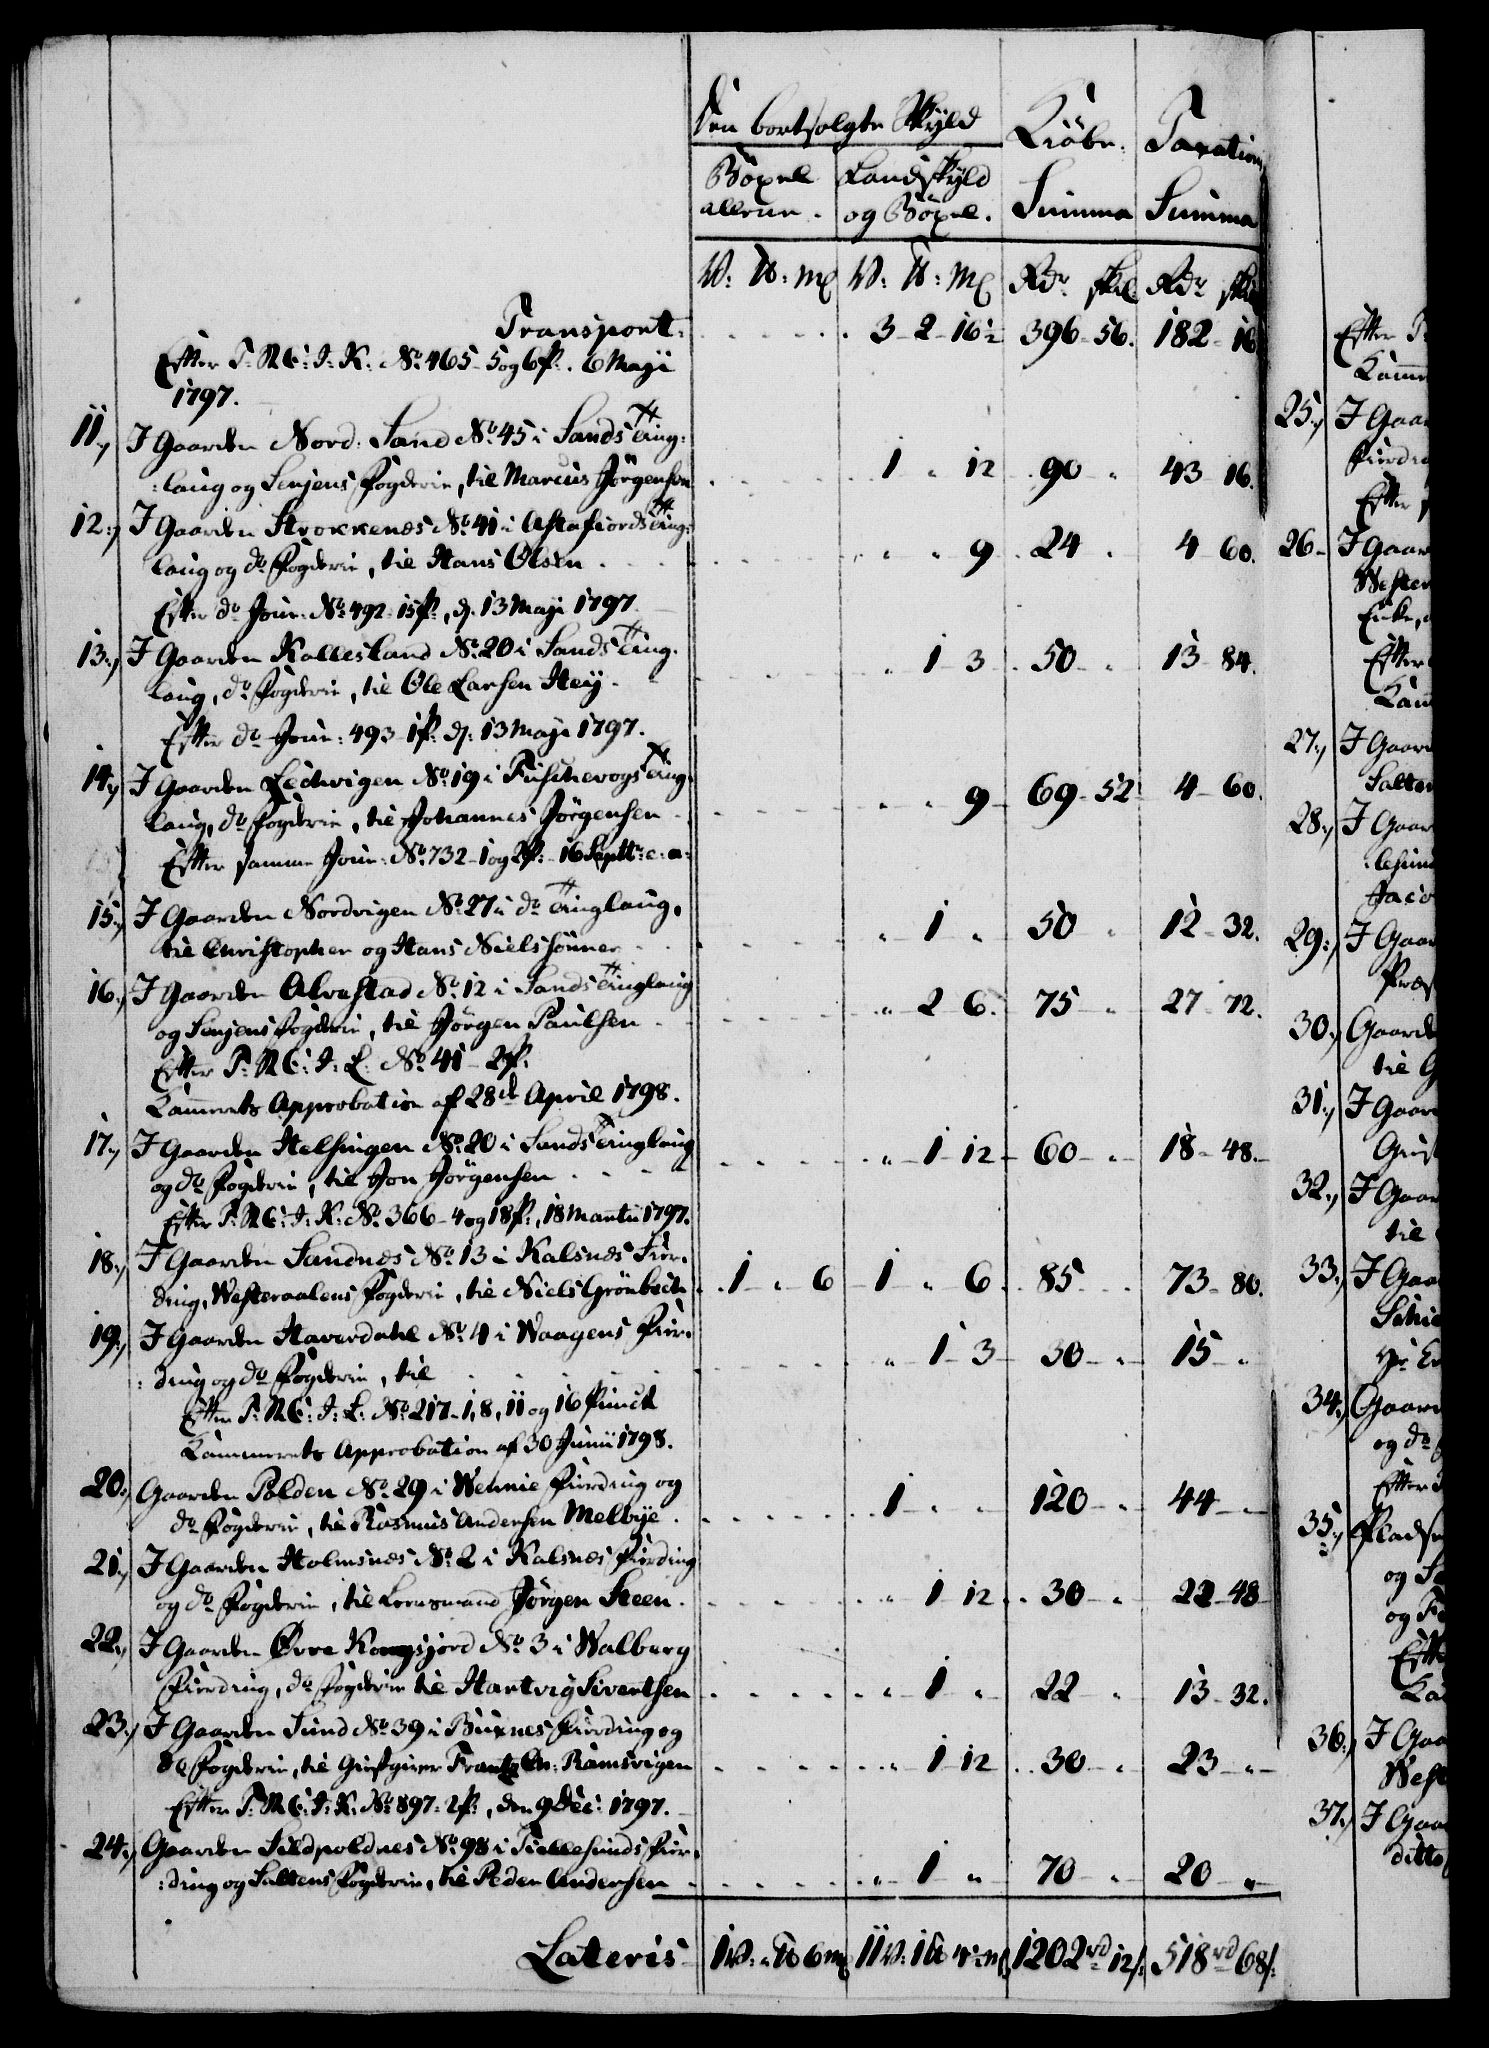 Den bortsolgte Skyld
Kiöbe
Taxations
Böxel Landskyld
allene. og Böxel.
Summa Summa
V: ℔: Mk V: ℔: Mk Rdr skil Rdr skil
Transport: 3 - 2 - 16½ 396 - 56. 182 - 16
Efter T: R C: J: K: No. 465 - 5 og 6 p. 6 Maji
1797.
11.) I Gaarden Nord: Sand No. 45 i Sands Ting-
:laug og Senjens Fogderie, til Marcus Jörgensen 1 „ 12 90 „ 43 - 16.
12.) I Gaarden Strokkenæs No. 41 i Astafiords Ting-
laug og do. Fogderie, til Hans Olsen „ „ 9 24 „ 4 60.
Efter do. Jour: No. 492 - 15 p., d. 13 Maji 1797
13.) I Gaarden Kallesland No. 20 i Sands Ting-
laug, do. Fogderie, til Ole Larsen Heij „ 1 - 3 50 „ 13 - 84.
Efter do. Jour: 493 - 1 p: d: 13 Maji 1797.
14.) I Gaarden Ledwigen No. 19 i Fuschevogs Ting-
laug, do. Fogderie, til Johannes Jörgensen „ „ 9 69 - 52 4 - 60.
Efter samme Jour: No. 732 - 1 og 2 p: - 16 Septtr. e: a:
15.) I Gaarden Nordvigen No. 27 i do. Tinglaug,
til Christopher og Hans Nielssönner „ 1 „ 50 „ 12 - 32.
16.) I Gaarden Alvestad No. 12 i Sands Tinglaug
og Senjens Fogderie, til Jörgen Paulsen „ 2 6. 75 „ 27 - 72.
Efter T: R C: J: L: No. 41 - 2 p:
Kammerets Approbation af 28d April 1798.
17.) I Gaarden Helsingen No. 20 i Sands Tinglaug
og do. Fogderie, til Jon Jörgensen „ 1 - 12 60 „ 18 - 48.
Efter T: R C: J: K: No. 366 - 4 og 18 p:, 18 Martii 1797.
18.) I Gaarden Sandnæs No. 13 i Kalsnæs Fier-
ding, Westeraalens Fogderie, til Niels Grönbech 1 „ 6 1 „ 6. 85 73 - 80.
19.) I Gaarden Haverdahl No. 4 i Waagens Fier-
:ding og do. Fogderie, til „ 1 - 3 30 „ 15 „
Efter T: R C: J: L: No. 217 - 1, 8, 11 og 16 Punct
Kammerets Approbation af 30 Junii 1798.
20.) Gaarden Polden No. 29 i Wennie Fierding og
do. Fogderie, til Rasmus Andersen Melbÿe. 1 „ „ 120 „ 44 „
21.) I Gaarden Holmsnæs No. 2 i Kalsnæs Fierding
og do. Fogderie, til Lensmand Jörgen Steen. „ 1 12 30 „ 22 - 48
22.) I Gaarden Øvre Kongsjord No. 3 i Walberg
Fierding, do. Fogderie til Hartvig Sivertsen „ 1 „ 22 „ 13 - 32.
23.) I Gaarden Sund No. 39 i Buxnes Fierding og
do Fogderie, til Giestgiver Frantz Chr: Ramsvigen „ 1 12 30 „ 23 „
Efter T: R C: J: K: No. 897: 2 p:, den 9 Dec: 1797.
24.) Gaarden Sildpoldnes No. 98 i Tiellesunds Fier-
:ding og Saltens Fogderie, til Peder Andersen „ 1 „ 70 „ 20 „
Lateris 1 V: „ ℔ 6 Mk 11 V: 1 ℔ 4½ Mk 1202 rd 12 s: 518 rd 68 s:
Efter
Kamm
25.) I Gaar
Fierdin
Efter
26 I Gaar
Wester
Enke,
Efter
Kam
27.) I Gaard
Salten
28.) I Gaar
Jaco
29.) I Gaar
Præs
30.) Gaarde
til G
31.) I Gaar
Gius
32.) I Gaar
til
33.) I Gaar
34.) Gaard
og do.
Efter
35.) Pladse
og
og
Efter
Ka
36.) I Gaa
West
37.) I Gaa
ditto